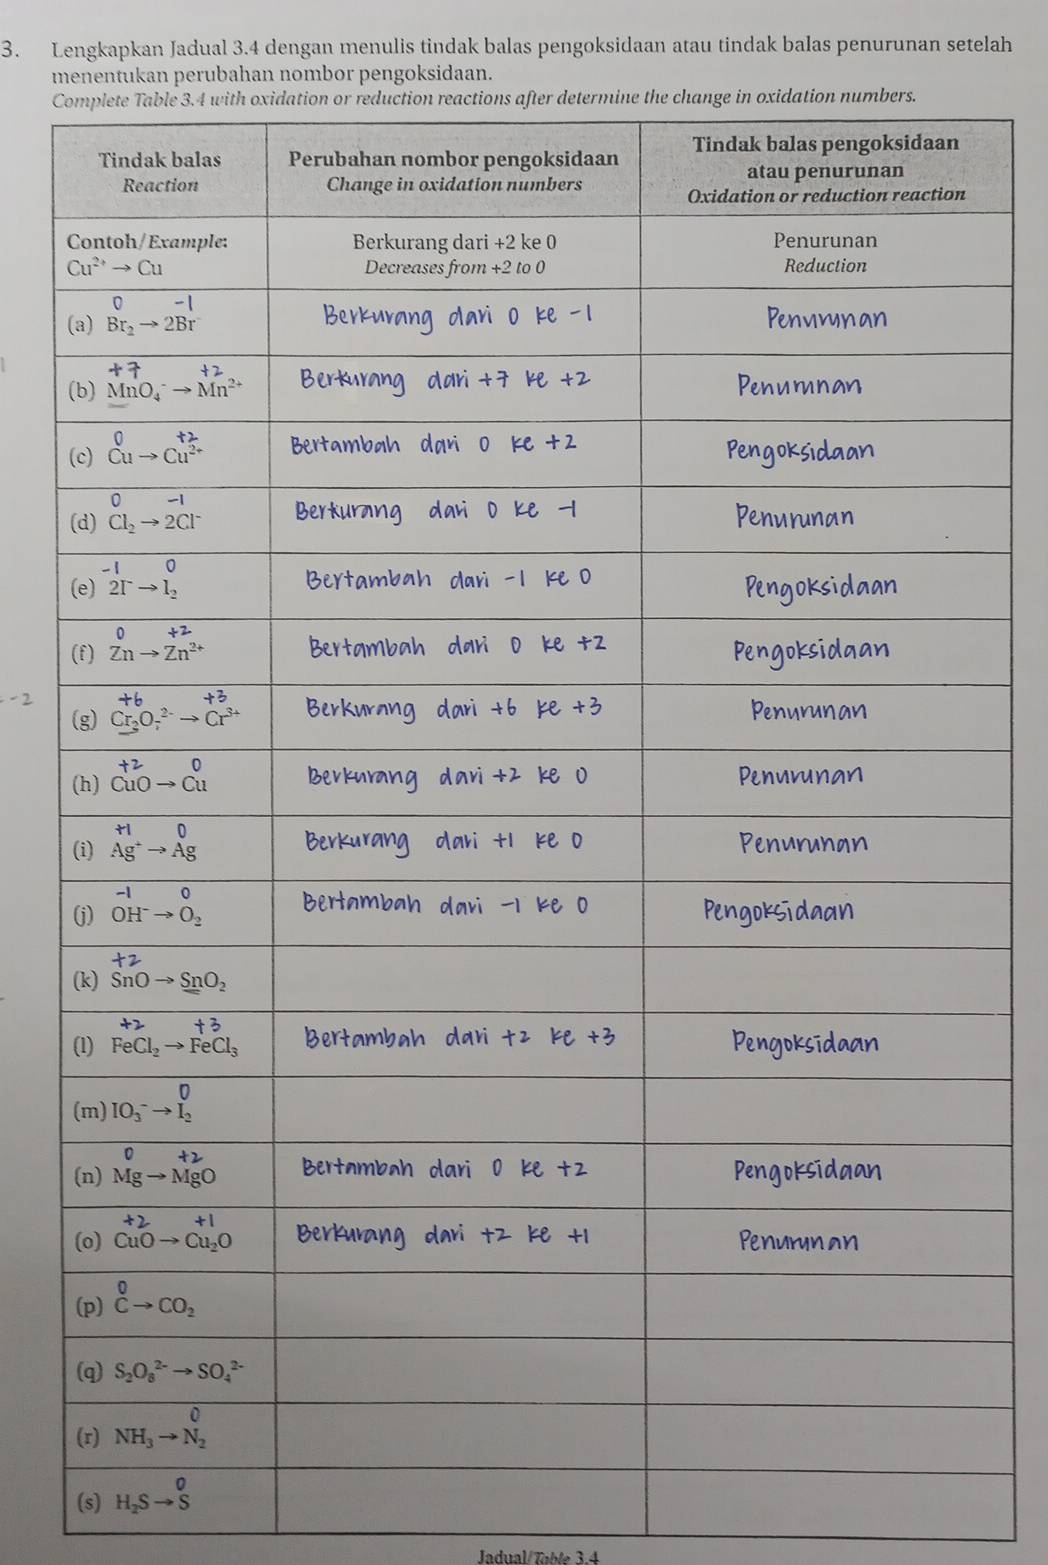 3. Lengkapkan Jadual 3.4 dengan menulis tindak balas pengoksidaan atau tindak balas penurunan setelah
menentukan perubahan nombor pengoksidaan.
Complete Table 3.4 with oxidation or reduction reactions after determine the change in oxidation numbers.
Tindak balas
Reaction
Perubahan nombor pengoksidaan
Change in oxidation numbers
Tindak balas pengoksidaan
atau penurunan
Oxidation or reduction reaction
Contoh/Example:
Cu²⁺ → Cu
Berkurang dari +2 ke 0
Decreases from +2 to 0
Penurunan
Reduction
0 -1
(a) Br₂ → 2Br⁻
Berkurang dari 0 ke -1
Penurunan
+7 +2
(b) MnO₄⁻ → Mn²⁺
Berkurang dari +7 ke +2
Penurunan
0 +2
(c) Cu → Cu²⁺
Bertambah dari 0 ke +2
Pengoksidaan
0 -1
(d) Cl₂ → 2Cl⁻
Berkurang dari 0 ke -1
Penurunan
-1 0
(e) 2I⁻ → I₂
Bertambah dari -1 ke 0
Pengoksidaan
0 +2
(f) Zn → Zn²⁺
Bertambah dari 0 ke +2
Pengoksidaan
-2
+6 +3
(g) Cr₂O₇²⁻ → Cr³⁺
Berkurang dari +6 ke +3
Penurunan
+2 0
(h) CuO → Cu
Berkurang dari +2 ke 0
Penurunan
+1 0
(i) Ag⁺ → Ag
Berkurang dari +1 ke 0
Penurunan
-1 0
(j) OH⁻ → O₂
Bertambah dari -1 ke 0
Pengoksidaan
+2
(k) SnO → SnO₂
+2 +3
(l) FeCl₂ → FeCl₃
Bertambah dari +2 ke +3
Pengoksidaan
0
(m) IO₃⁻ → I₂
0 +2
(n) Mg → MgO
Bertambah dari 0 ke +2
Pengoksidaan
+2 +1
(o) CuO → Cu₂O
Berkurang dari +2 ke +1
Penurunan
0
(p) C → CO₂
(q) S₂O₈²⁻ → SO₄²⁻
0
(r) NH₃ → N₂
0
(s) H₂S → S
Jadual/Table 3.4